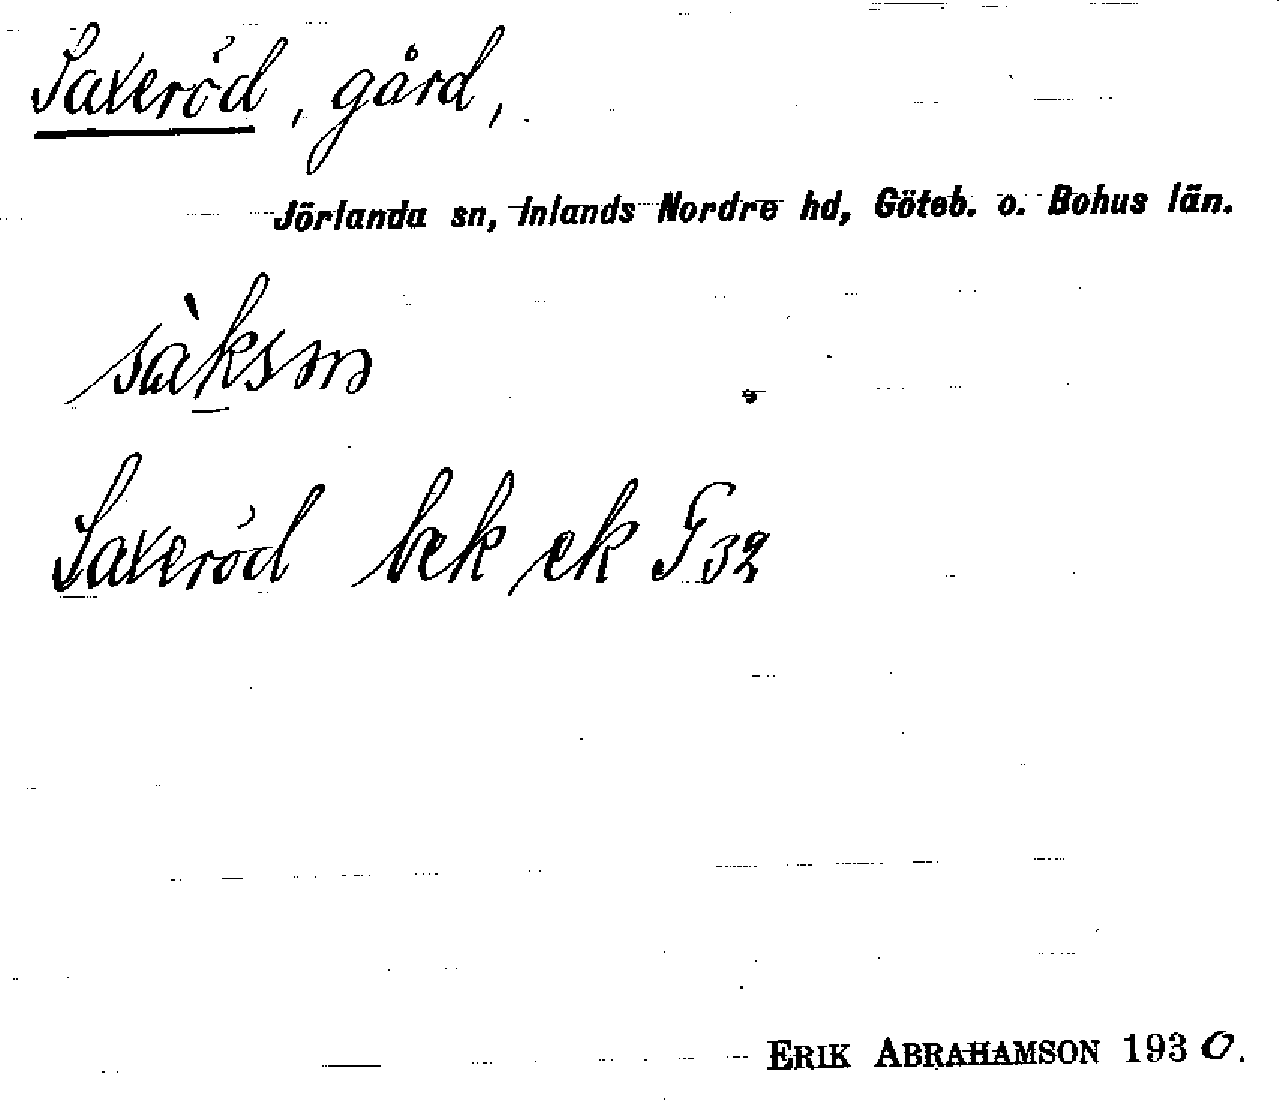 Saxeröd, gård,
Jörlanda sn, Inlands Nordre hd, Göteb. o. Bohus län.
Saxeröd bek ek F 32
ERIK ABRAHAMSON 1930.